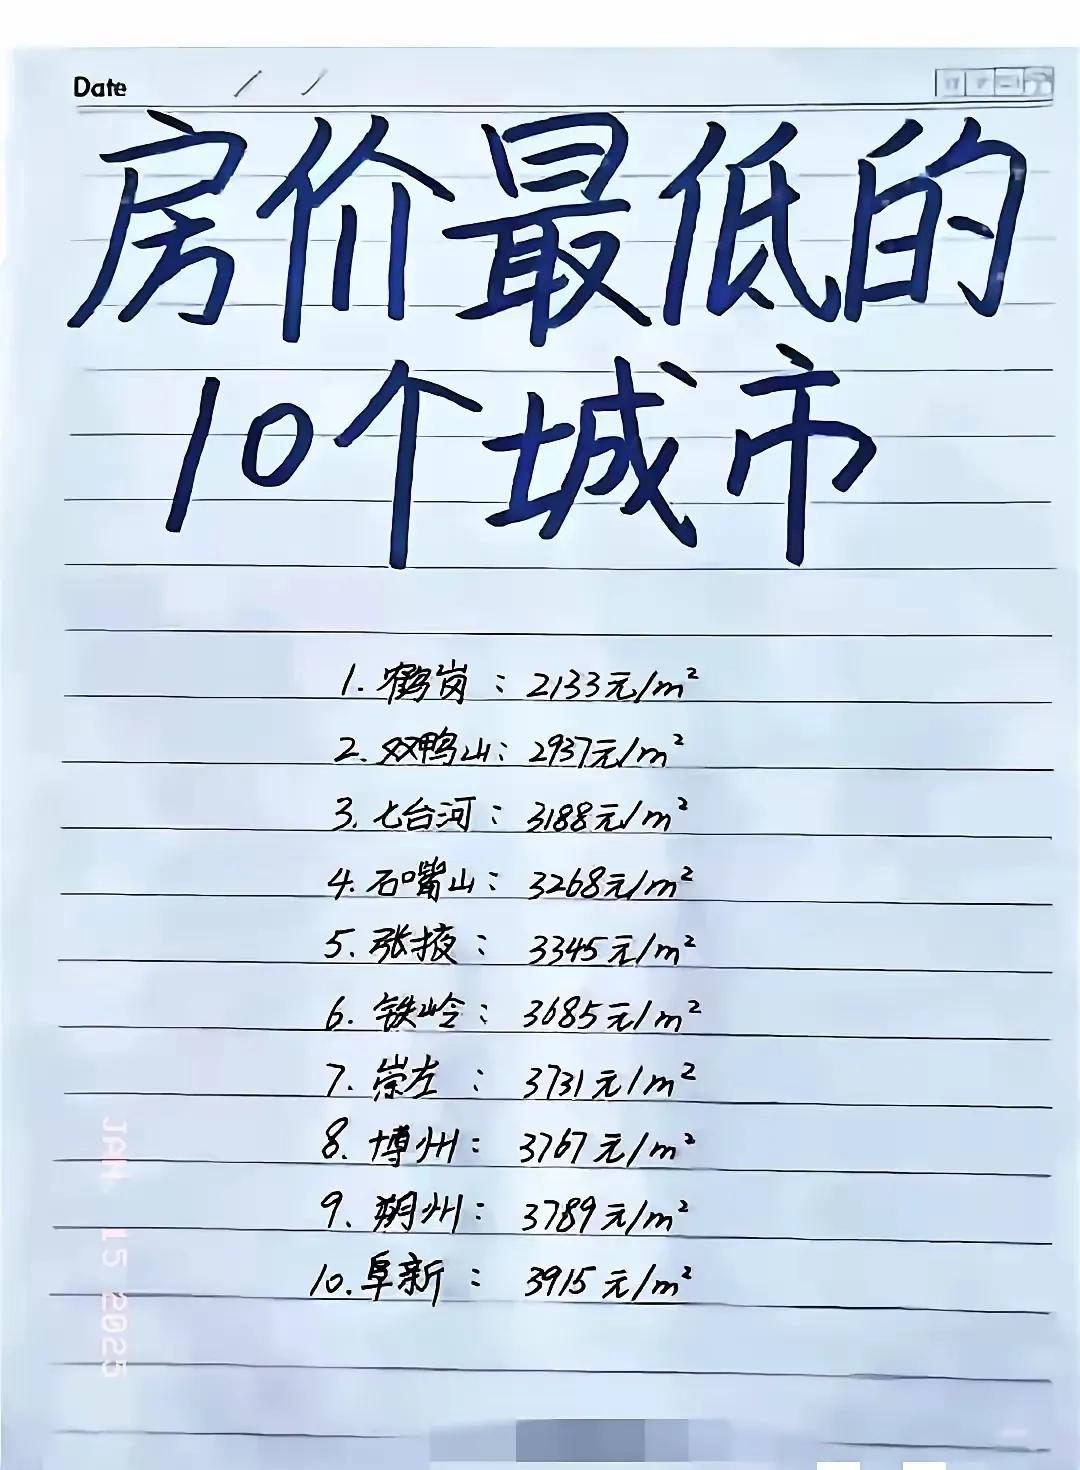 Date / /
房价最低的
10个城市
1. 鹤岗：2133元/m²
2. 双鸭山：2937元/m²
3. 七台河：3188元/m²
4. 石嘴山：3268元/m²
5. 张掖：3345元/m²
6. 铁岭：3685元/m²
7. 崇左：3731元/m²
8. 博州：3767元/m²
9. 朔州：3789元/m²
10. 阜新：3915元/m²
JAN. 15 2025